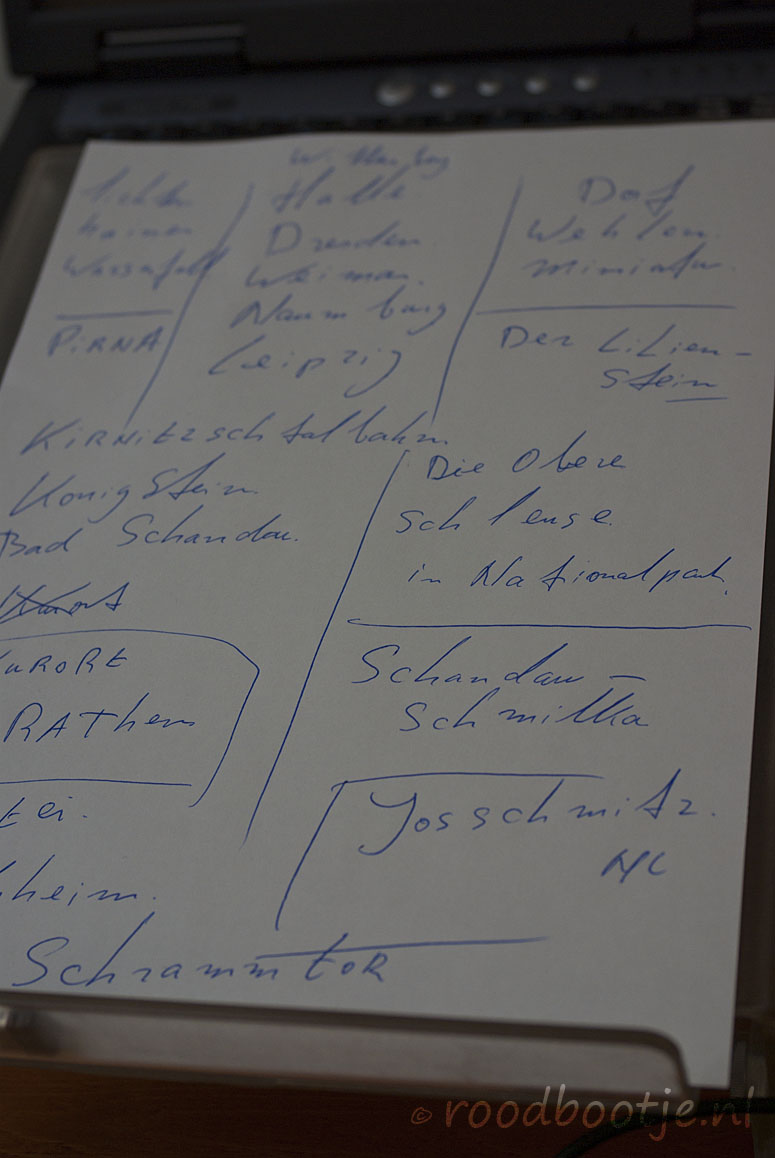 Lichten
hainer
Wasserfall
PIRNA
Wittenberg
Halle
Dresden
Weimar.
Naumburg
Leipzig
Dorf
Wehlen
miniatur
Der Lilien-
stein
Kirnitzschtalbahn
Konigstein
Bad Schandau.
Kurort
KURORT
RAThen
tei.
hheim.
Die Obere
Schleuse
in Nationalpark.
Schandau -
Schmilka
Josschmitz.
NL
Schrammtor
© roodbootje.nl